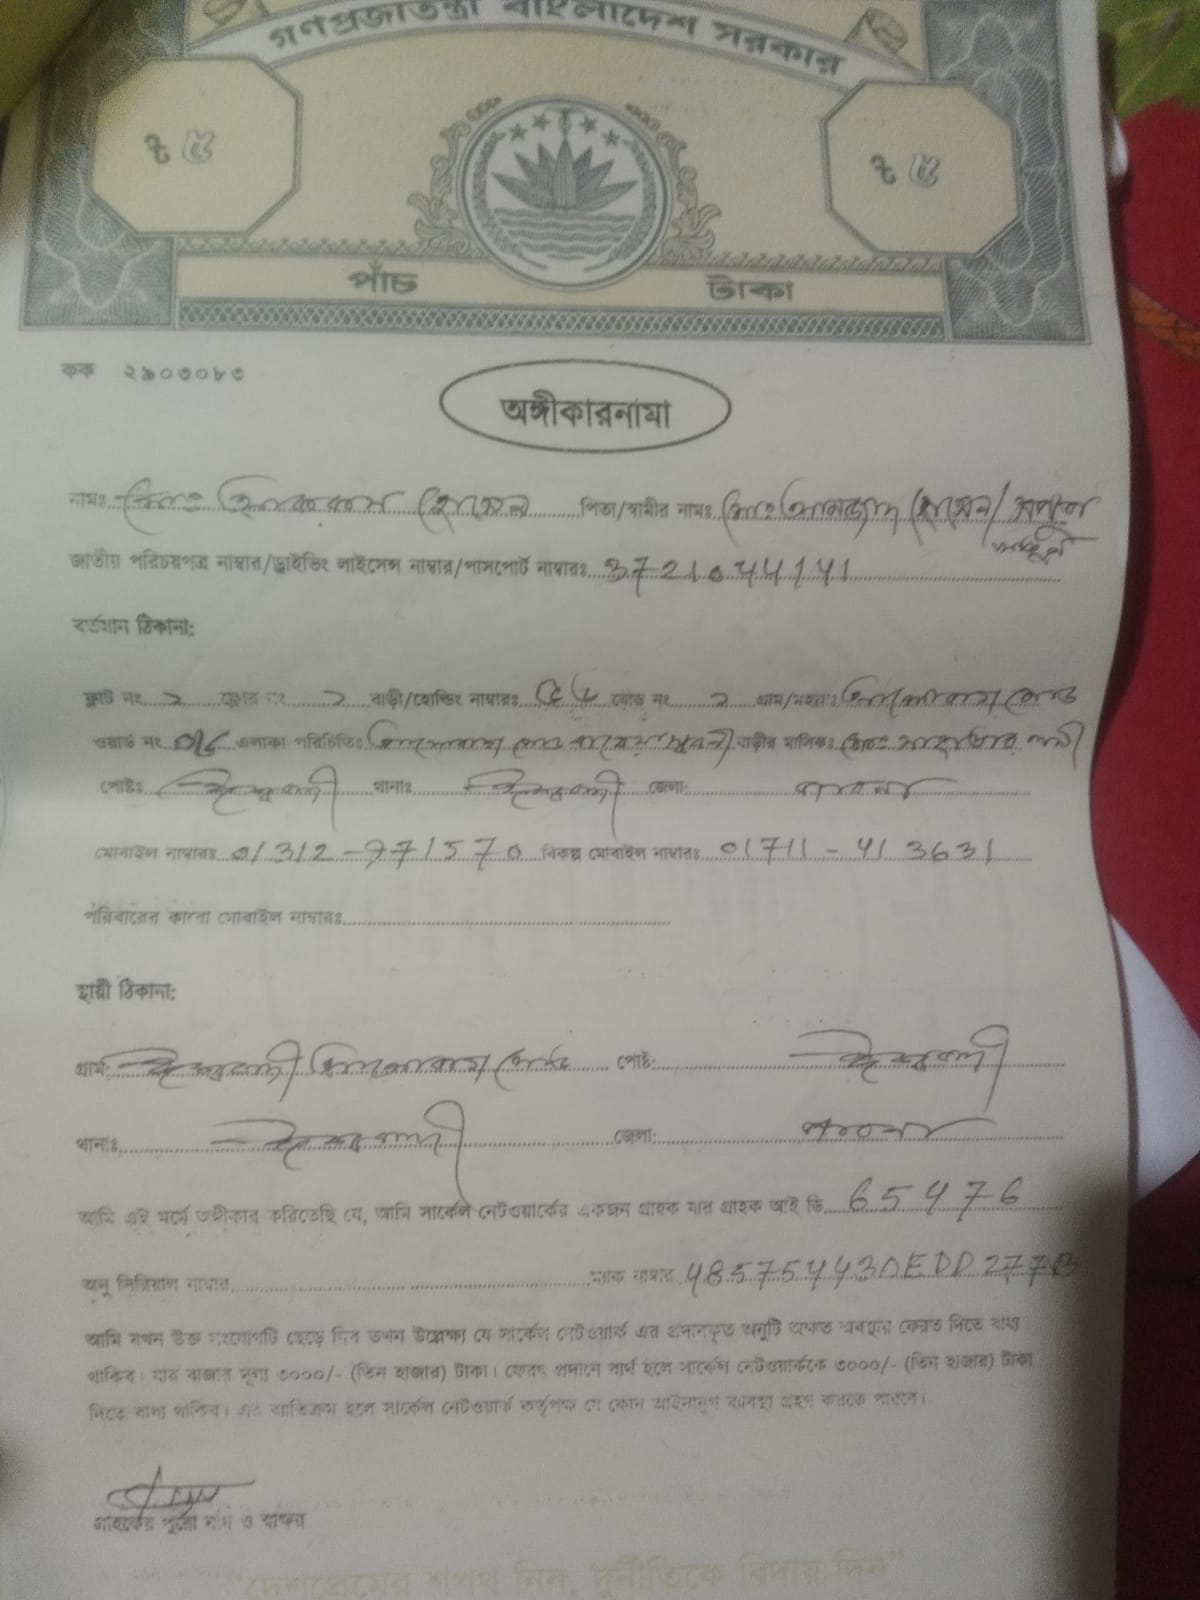 গণপ্রজাতন্ত্রী বাংলাদেশ সরকার
৳ ৫ ৳ ৫
পাঁচ টাকা
কক ২৯০৩০৮৩
অঙ্গীকারনামা
নামঃ হোসেন পিতা/স্বামীর নামঃ মোঃ হোসেন/
জাতীয় পরিচয়পত্র নাম্বার/ড্রাইভিং লাইসেন্স নাম্বার/পাসপোর্ট নাম্বারঃ 3721044141
বর্তমান ঠিকানা:
ফ্লাট নং ২ ফ্লোর নং ২ বাড়ী/হোল্ডিং নাম্বারঃ রোড নং ২ গ্রাম/মহল্লাঃ রোড
ওয়ার্ড নং এলাকা পরিচিতিঃ রোড বাড়ীর মালিকঃ মোঃ
পোষ্টঃ ঈশ্বরদী থানাঃ ঈশ্বরদী জেলা: পাবনা
মোবাইল নাম্বারঃ 01312-971570 বিকল্প মোবাইল নাম্বারঃ 01711-413631
পরিবারের কারো মোবাইল নাম্বারঃ
স্থায়ী ঠিকানা:
গ্রাম: ঈশ্বরদী রোড পোষ্ট: ঈশ্বরদী
থানাঃ ঈশ্বরদী জেলা: পাবনা
আমি এই মর্মে অঙ্গীকার করিতেছি যে, আমি সার্কেল নেটওয়ার্কের একজন গ্রাহক যার গ্রাহক আই ডি 65476
অনু সিরিয়াল নাম্বার ম্যাক নাম্বার 485754430EDD277B
আমি যখন উক্ত সংযোগটি ছেড়ে দিব তখন উল্লেখ্য যে সার্কেল নেটওয়ার্ক এর প্রদানকৃত অনুটি অক্ষত অবস্থায় ফেরত দিতে বাধ্য
থাকিব। যার বাজার মূল্য ৩০০০/- (তিন হাজার) টাকা। ফেরৎ প্রদানে ব্যর্থ হলে সার্কেল নেটওয়ার্ককে ৩০০০/- (তিন হাজার) টাকা
দিতে বাধ্য থাকিব। এর ব্যতিক্রম হলে সার্কেল নেটওয়ার্ক কর্তৃপক্ষ যে কোন আইনানুগ ব্যবস্থা গ্রহণ করতে পারবে।
গ্রাহকের পুরো নাম ও স্বাক্ষর
"দেশপ্রেমের শপথ নিন, দুর্নীতিকে বিদায় দিন"